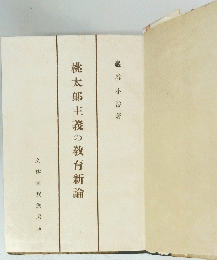 巖谷小波著
桃太郎主義の教育新論